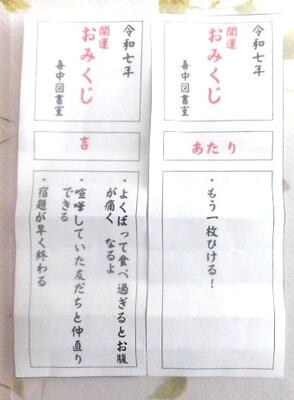 令和七年
開運
おみくじ
春中図書室
あたり
・もう一枚ひける!
令和七年
開運
おみくじ
春中図書室
吉
・よくばって食べ過ぎるとお腹
が痛く なるよ
・喧嘩していた友だちと仲直り
できる
・宿題が早く終わる